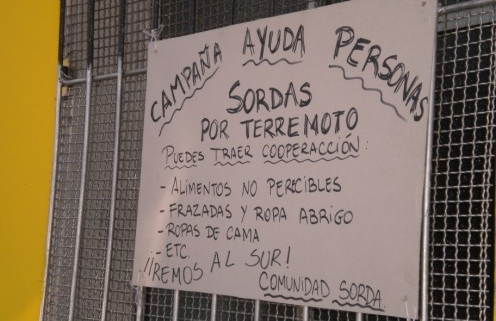 CAMPAÑA AYUDA PERSONAS
SORDAS
POR TERREMOTO
PUEDES TRAER COOPERACCIÓN:
- ALIMENTOS NO PERECIBLES
- FRAZADAS Y ROPA ABRIGO
- ROPAS DE CAMA
- ETC.
¡¡IREMOS AL SUR!
COMUNIDAD SORDA